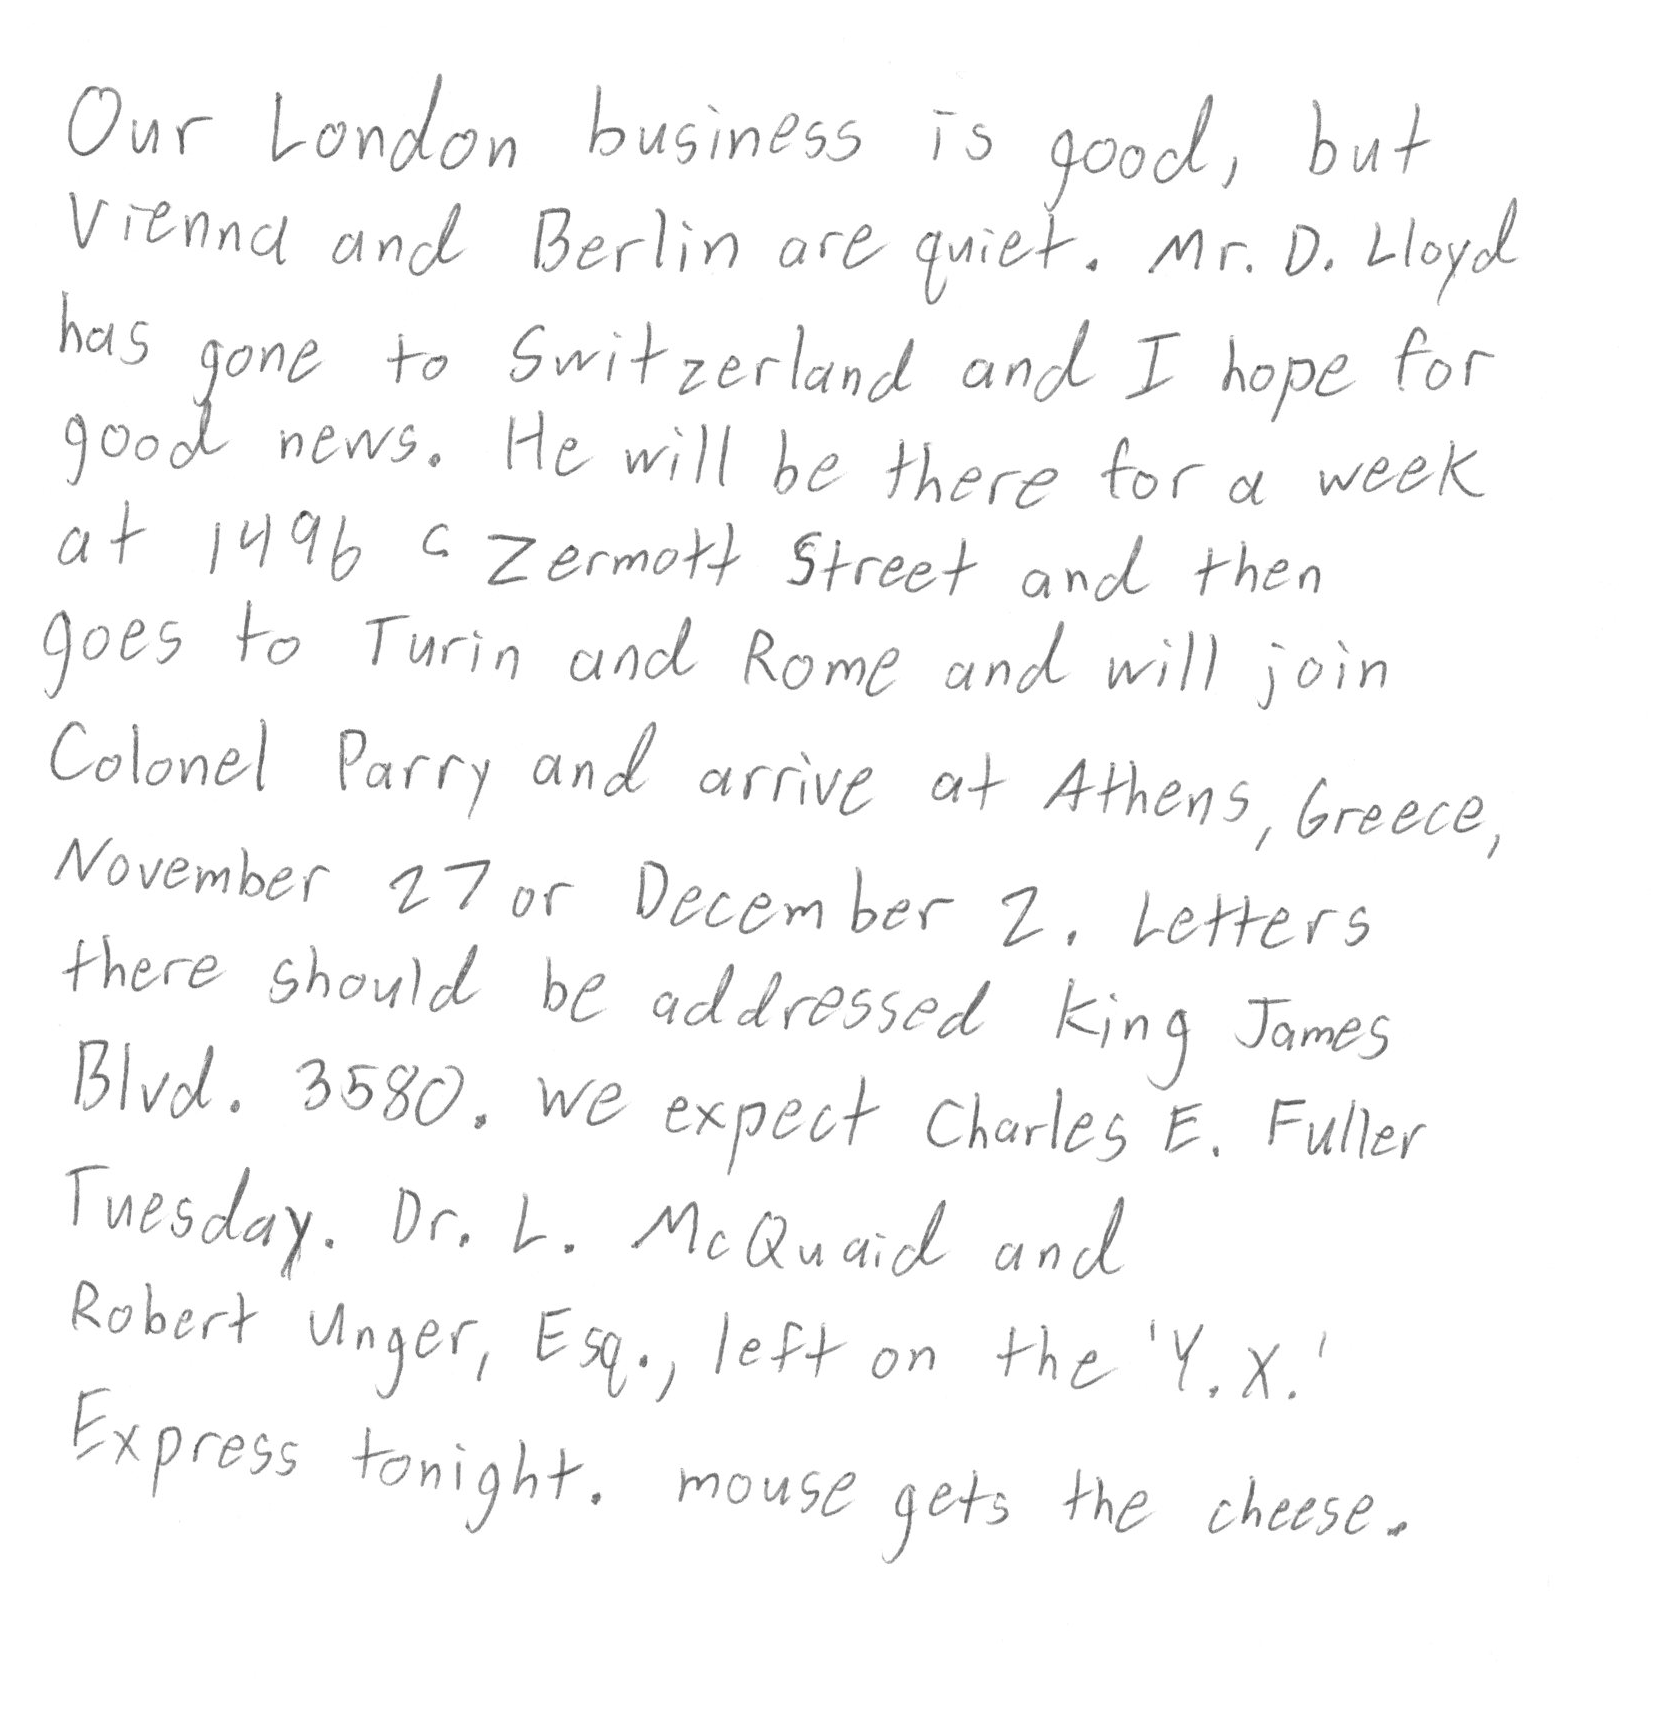 Our London business is good, but
Vienna and Berlin are quiet. Mr. D. Lloyd
has gone to Switzerland and I hope for
good news. He will be there for a week
at 1496 c Zermott Street and then
goes to Turin and Rome and will join
Colonel Parry and arrive at Athens, Greece,
November 27 or December 2. Letters
there should be addressed King James
Blvd. 3580. We expect Charles E. Fuller
Tuesday. Dr. L. McQuaid and
Robert Unger, Esq., left on the 'Y.X.'
Express tonight. mouse gets the cheese.